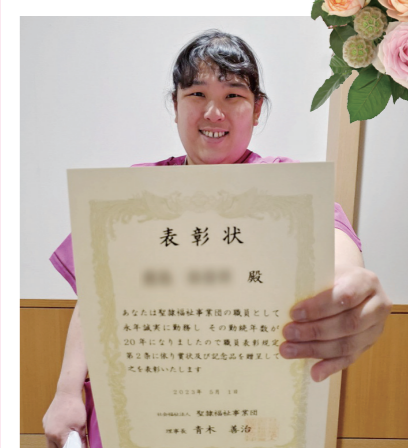 表彰状
殿
あなたは聖隷福祉事業団の職員として
永年誠実に勤務し その勤続年数が
20年になりましたので職員表彰規定
第2条に依り賞状及び記念品を贈呈して
之を表彰いたします
社会福祉法人 聖隷福祉事業団
理事長 青木 善治